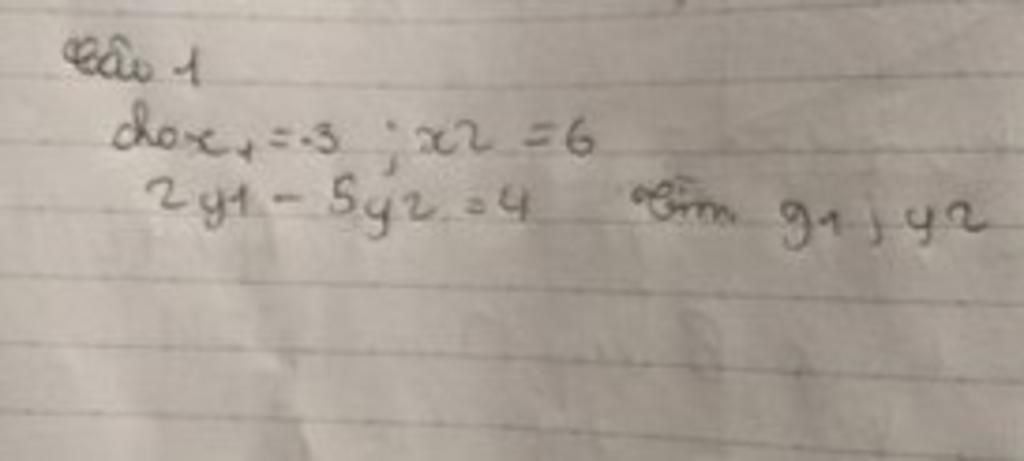 Câu 1
cho x1 = -3 ; x2 = 6
2y1 - 5y2 = 4 Tìm y1 ; y2